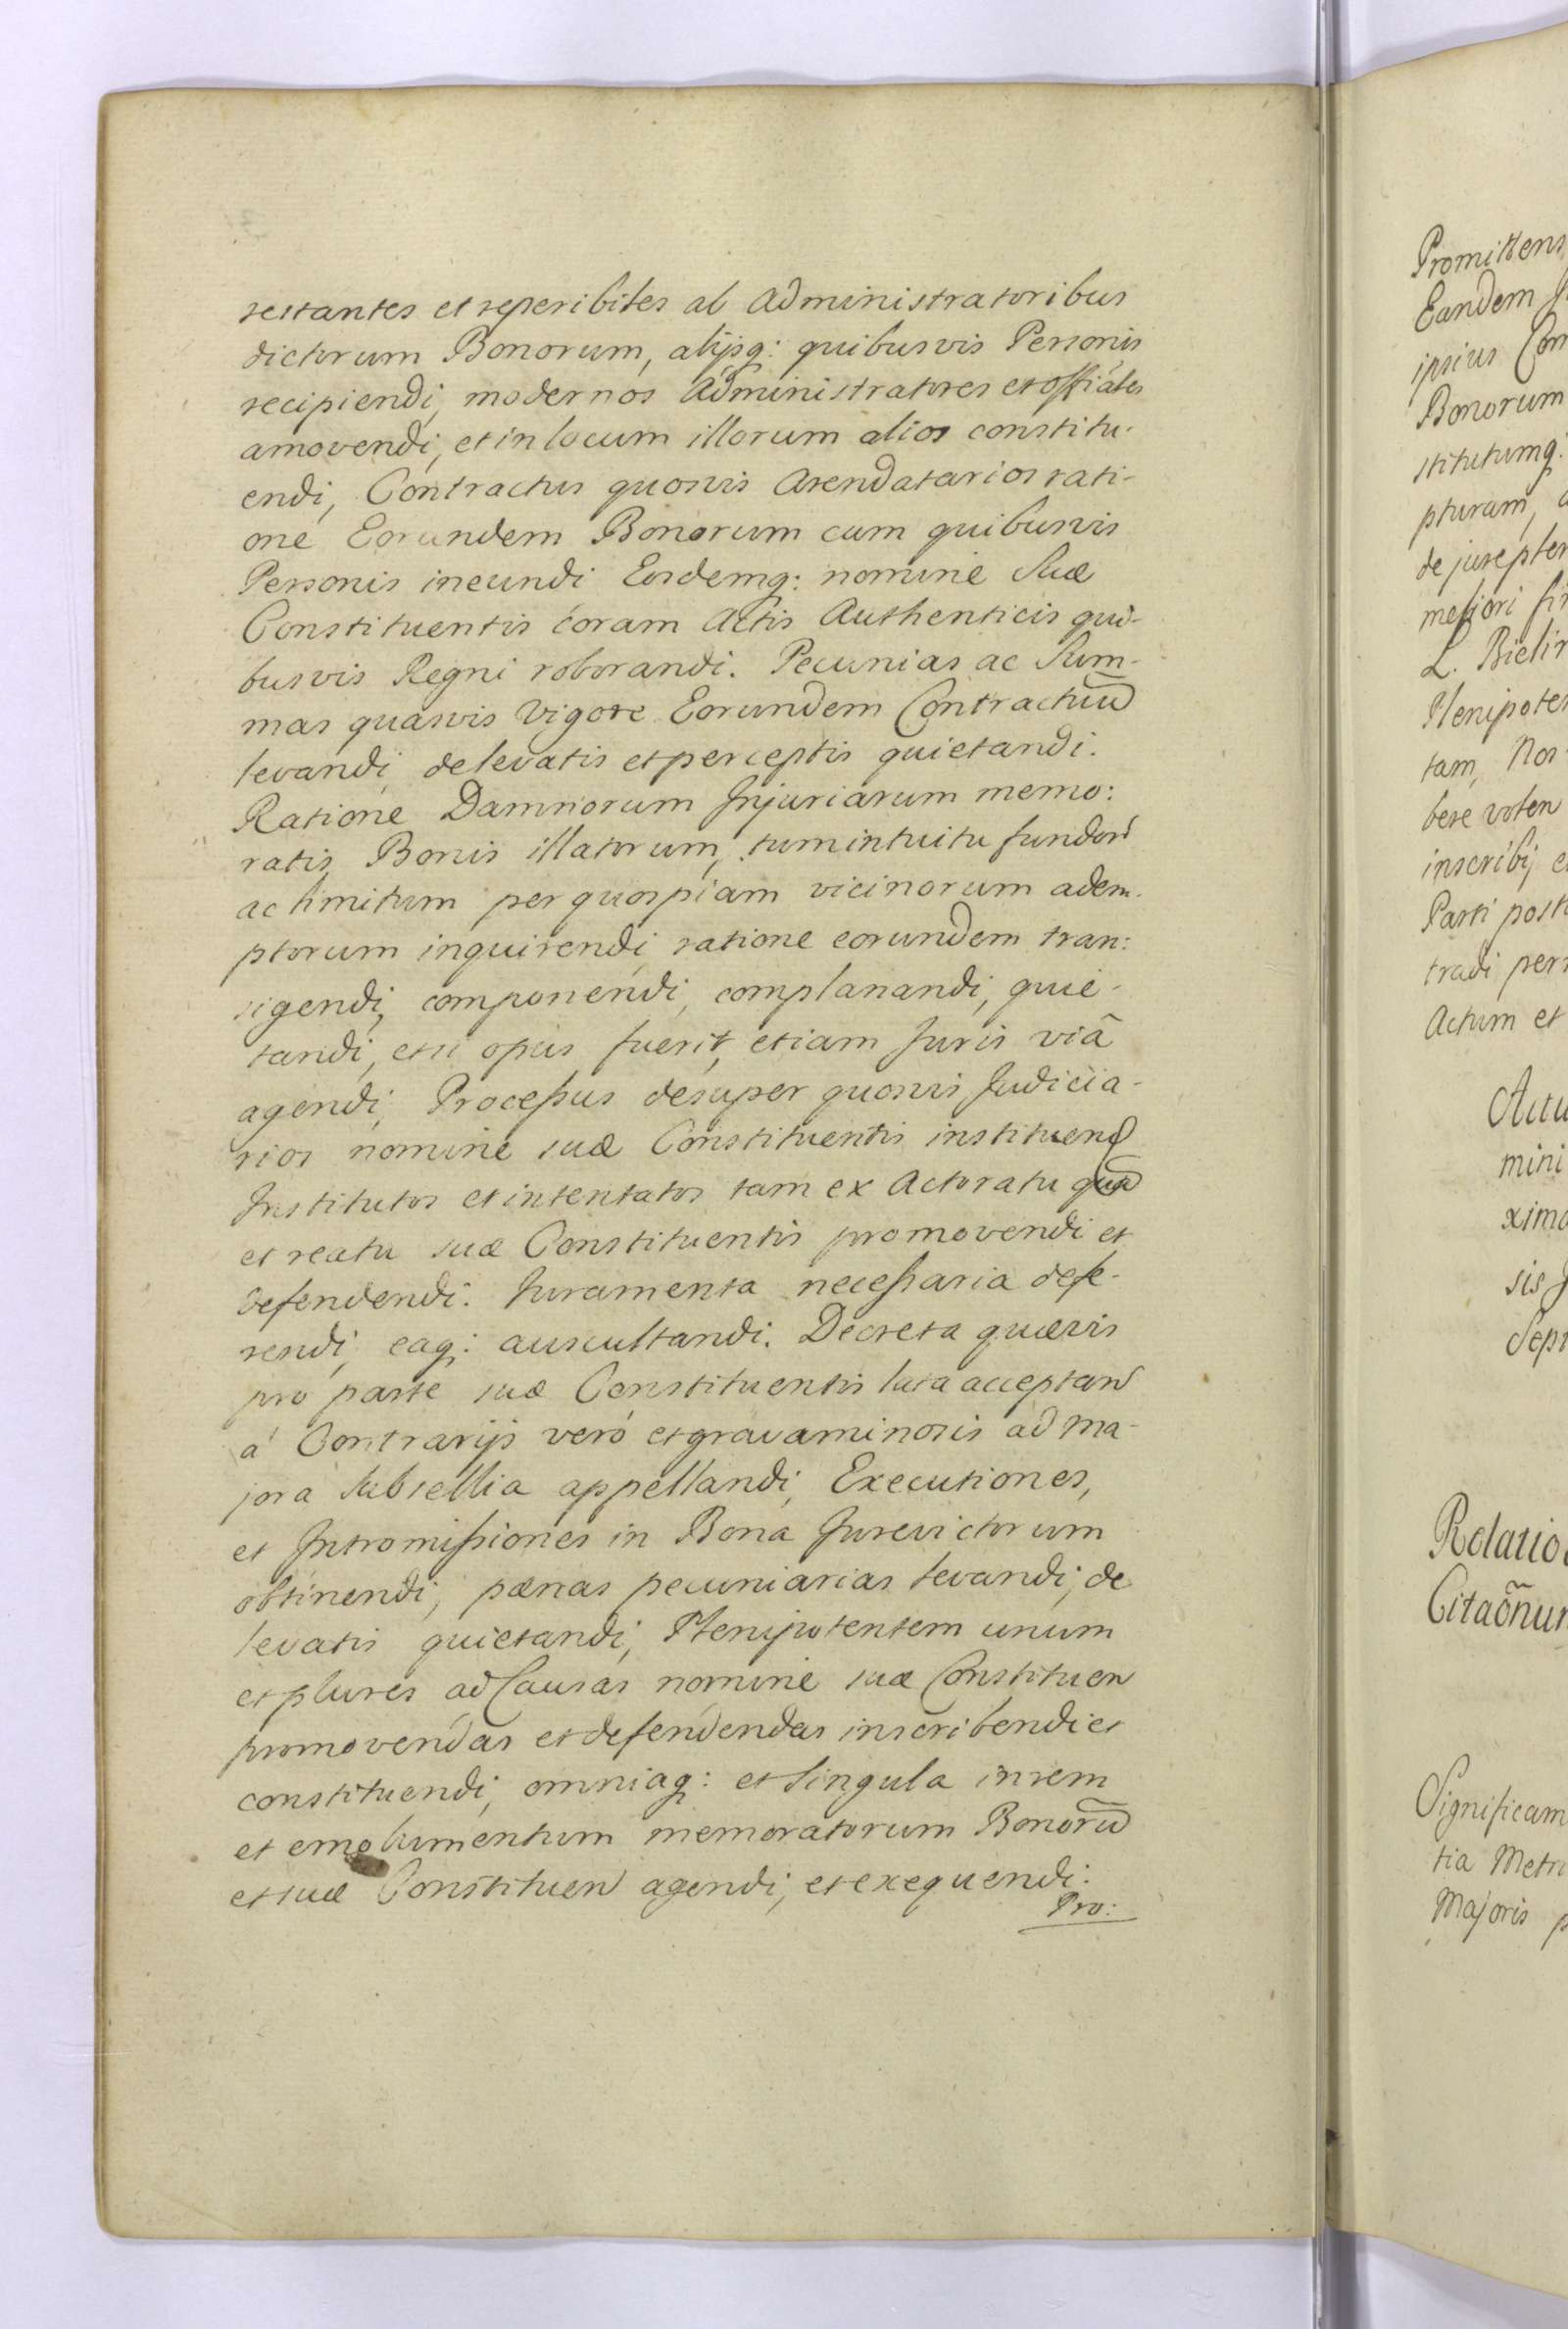 restantes et reperibiles ab Administratoribus
dictorum Bonorum, alijsq: quibusvis Personis
recipiendi, modernos Administratores et offiales
amovendi, et in locum illorum alios constitu-
endi, Contractus quosvis Arendatarios rati-
one Eorundem Bonorum cum quibusvis
Personis ineundi Eosdemq: nomine Suæ
Constituentis coram Actis Authenticis qui-
busvis Regni roborandi. Pecunias ac Sum-
mas quasvis vigore Eorundem Contractuū
levandi, de levatis et perceptis quietandi.
Ratione Damnorum Injuriarum memo:
ratis Bonis illatorum, tum intuitu fundorū
ac limitum per quospiam vicinorum adem-
ptorum inquirendi, ratione eorundem tran:
sigendi, componendi, complanandi, quie-
tandi, et si opus fuerit, etiam Juris viâ
agendi, Processus desuper quosvis Judicia-
rios nomine suæ Constituentis instituend
Institutos et intentatos tam ex Actoratu quā
et reatu suæ Constituentis promovendi et
defendendi. Juramenta necessaria defe-
rendi, eaq: auscultandi. Decreta quævis
pro parte suæ Constituentis lata acceptan
à Contrarijs verò et gravaminosis ad ma-
jora Subsellia appellandi, Executiones,
et Intromissiones in Bona Jurevictorum
obtinendi, pænas pecuniarias levandi, de
levatis quietandi, Plenipotentem unum
et plures ad Causas nomine suæ Constituen
promovendas et defendendas inscribendi et
constituendi, omniaq: et Singula in rem
et emolumentum memoratorum Bonorū
et suæ Constituen agendi, et exequendi.
Pro:
Promittens
Eandem
ipsius Con
Bonorum
stitutumq:
pturam,
de jure
meliori
L. Bielin
Plenipoten
tam, Nos
bere volen
inscribi, e
Parti post
tradi per
Actum et
Actu
mini
xima
sis J
Sept
Relatio
Citaõnum
Significam
tia Metri
Majoris p